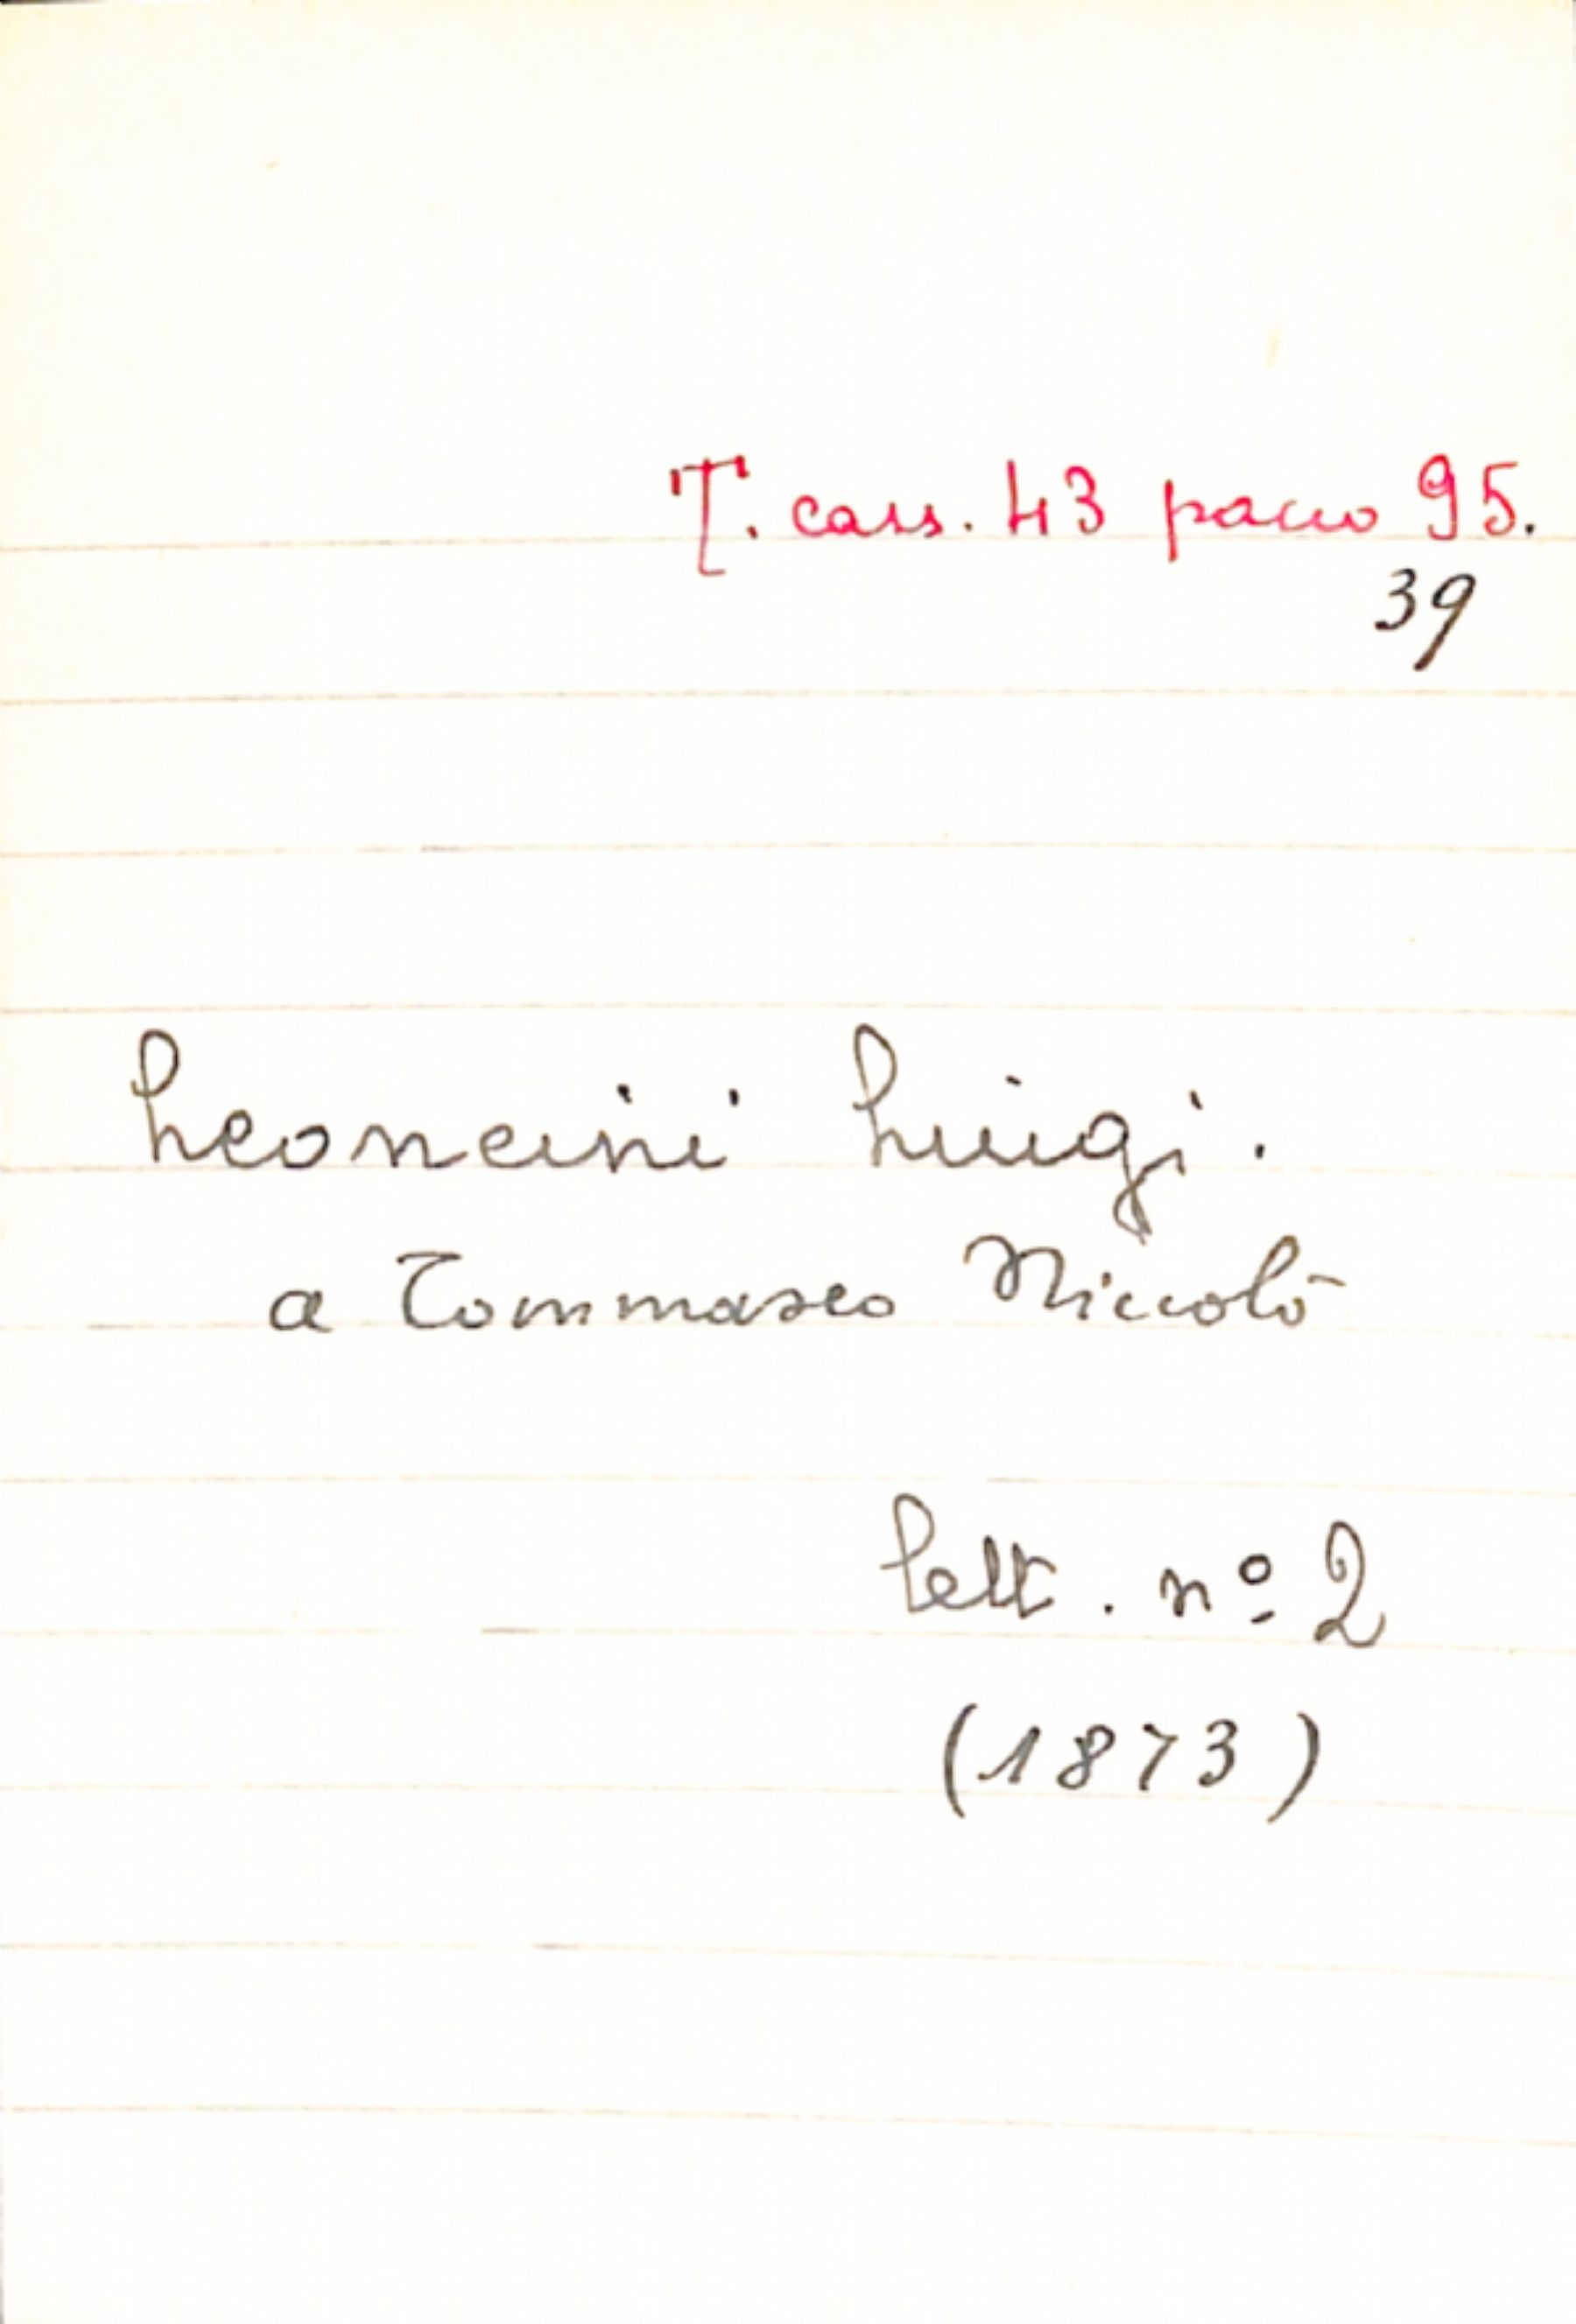 T. cass. 43 pacco 95.
39
Leoncini Luigi.
a Tommaseo Niccolò
Lett. nº 2
(1873)